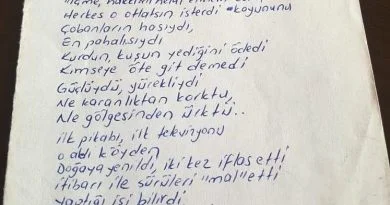 Herkes o otlatsın isterdi koyununu
Çobanların hasıydı,
En pahalısıydı
Kurdun, kuşun yediğini ödedi
Kimseye öte git demedi
Güçlüydü, yürekliydi
Ne karanlıktan korktu,
Ne gölgesinden ürktü..
ilk pikabı, ilk televizyonu
o aldı köyden
Doğaya yenildi, iki kez iflas etti
itibarı ile sürüleri "mal" etti
yaptığı işi bilirdi